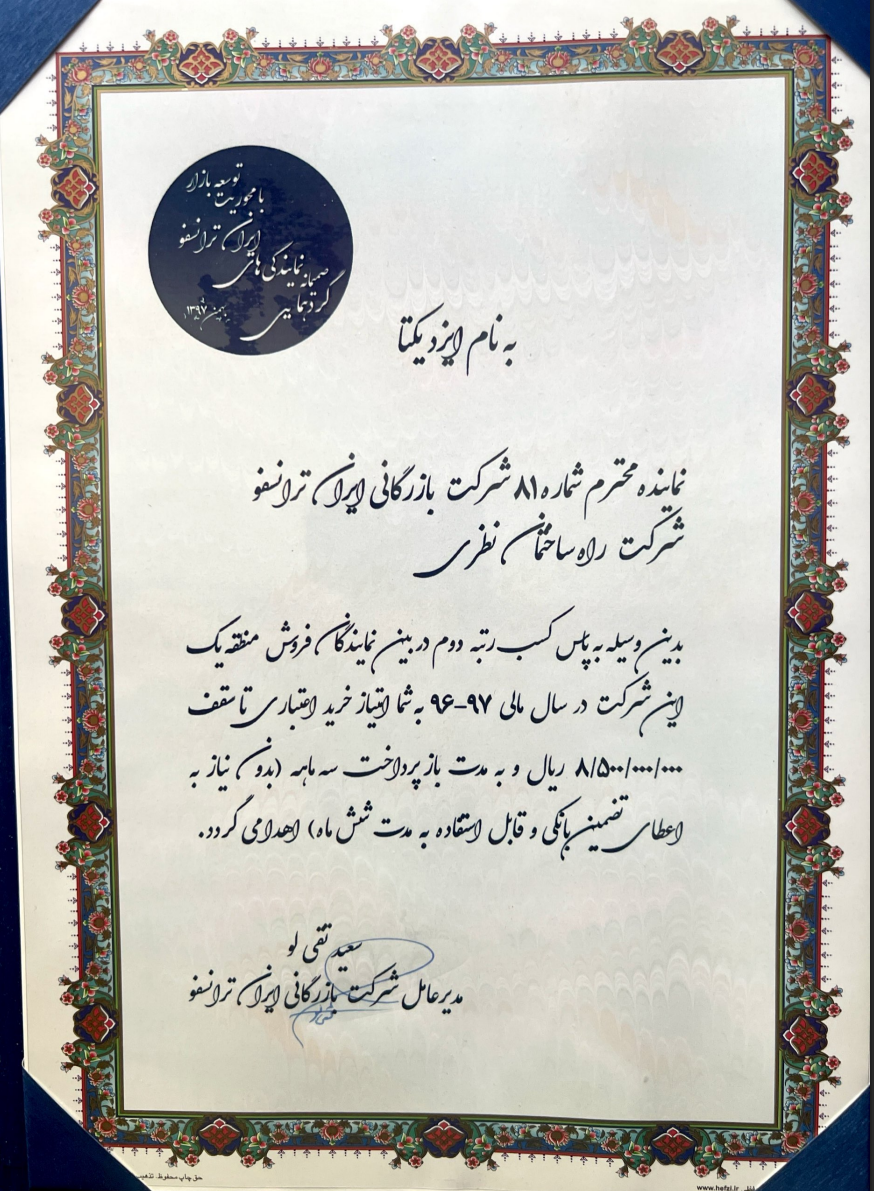 توسعه بازار
با محوریت
ایران ترانسفو
نمایندگی های
صمیمانه
گردهمایی
بهمن ۱۳۹۷
به نام ایزد یکتا
نماینده محترم شماره ۸۱ شرکت بازرگانی ایران ترانسفو
شرکت راه ساختمان نظری
بدین وسیله به پاس کسب رتبه دوم در بین نمایندگان فروش منطقه یک
این شرکت در سال مالی ۹۷-۹۶ به شما امتیاز خرید اعتباری تا سقف
۸/۵۰۰/۰۰۰/۰۰۰ ریال و به مدت بازپرداخت سه ماهه (بدون نیاز به
اعطای تضمین بانکی و قابل استفاده به مدت شش ماه) اهدا می گردد.
سعید تقی لو
مدیرعامل شرکت بازرگانی ایران ترانسفو
حق چاپ محفوظ. تذهیب
www.hefzi.ir